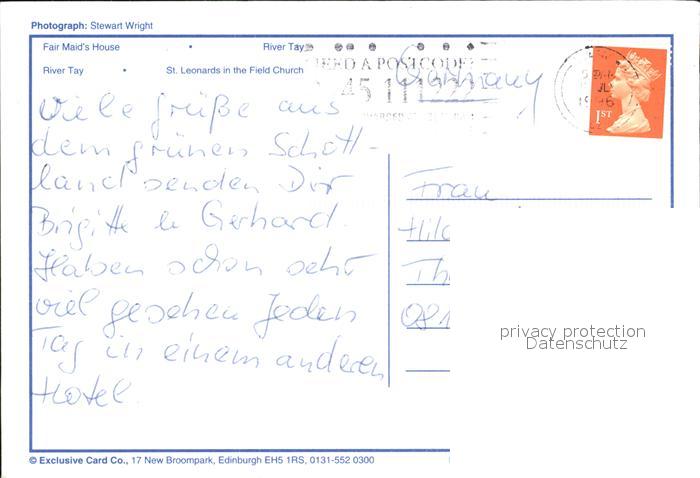 Photograph: Stewart Wright
Fair Maid's House • River Tay
River Tay • St. Leonards in the Field Church
NEED A POSTCODE?
Germany
1ST
Viele Grüße aus
dem grünen Schott-
land senden Dir
Brigitte u Gerhard.
Haben schon sehr
viel gesehen Jeden
Tag in einem anderen
Hotel.
Frau
Hild
Th
privacy protection
Datenschutz
© Exclusive Card Co., 17 New Broompark, Edinburgh EH5 1RS, 0131-552 0300